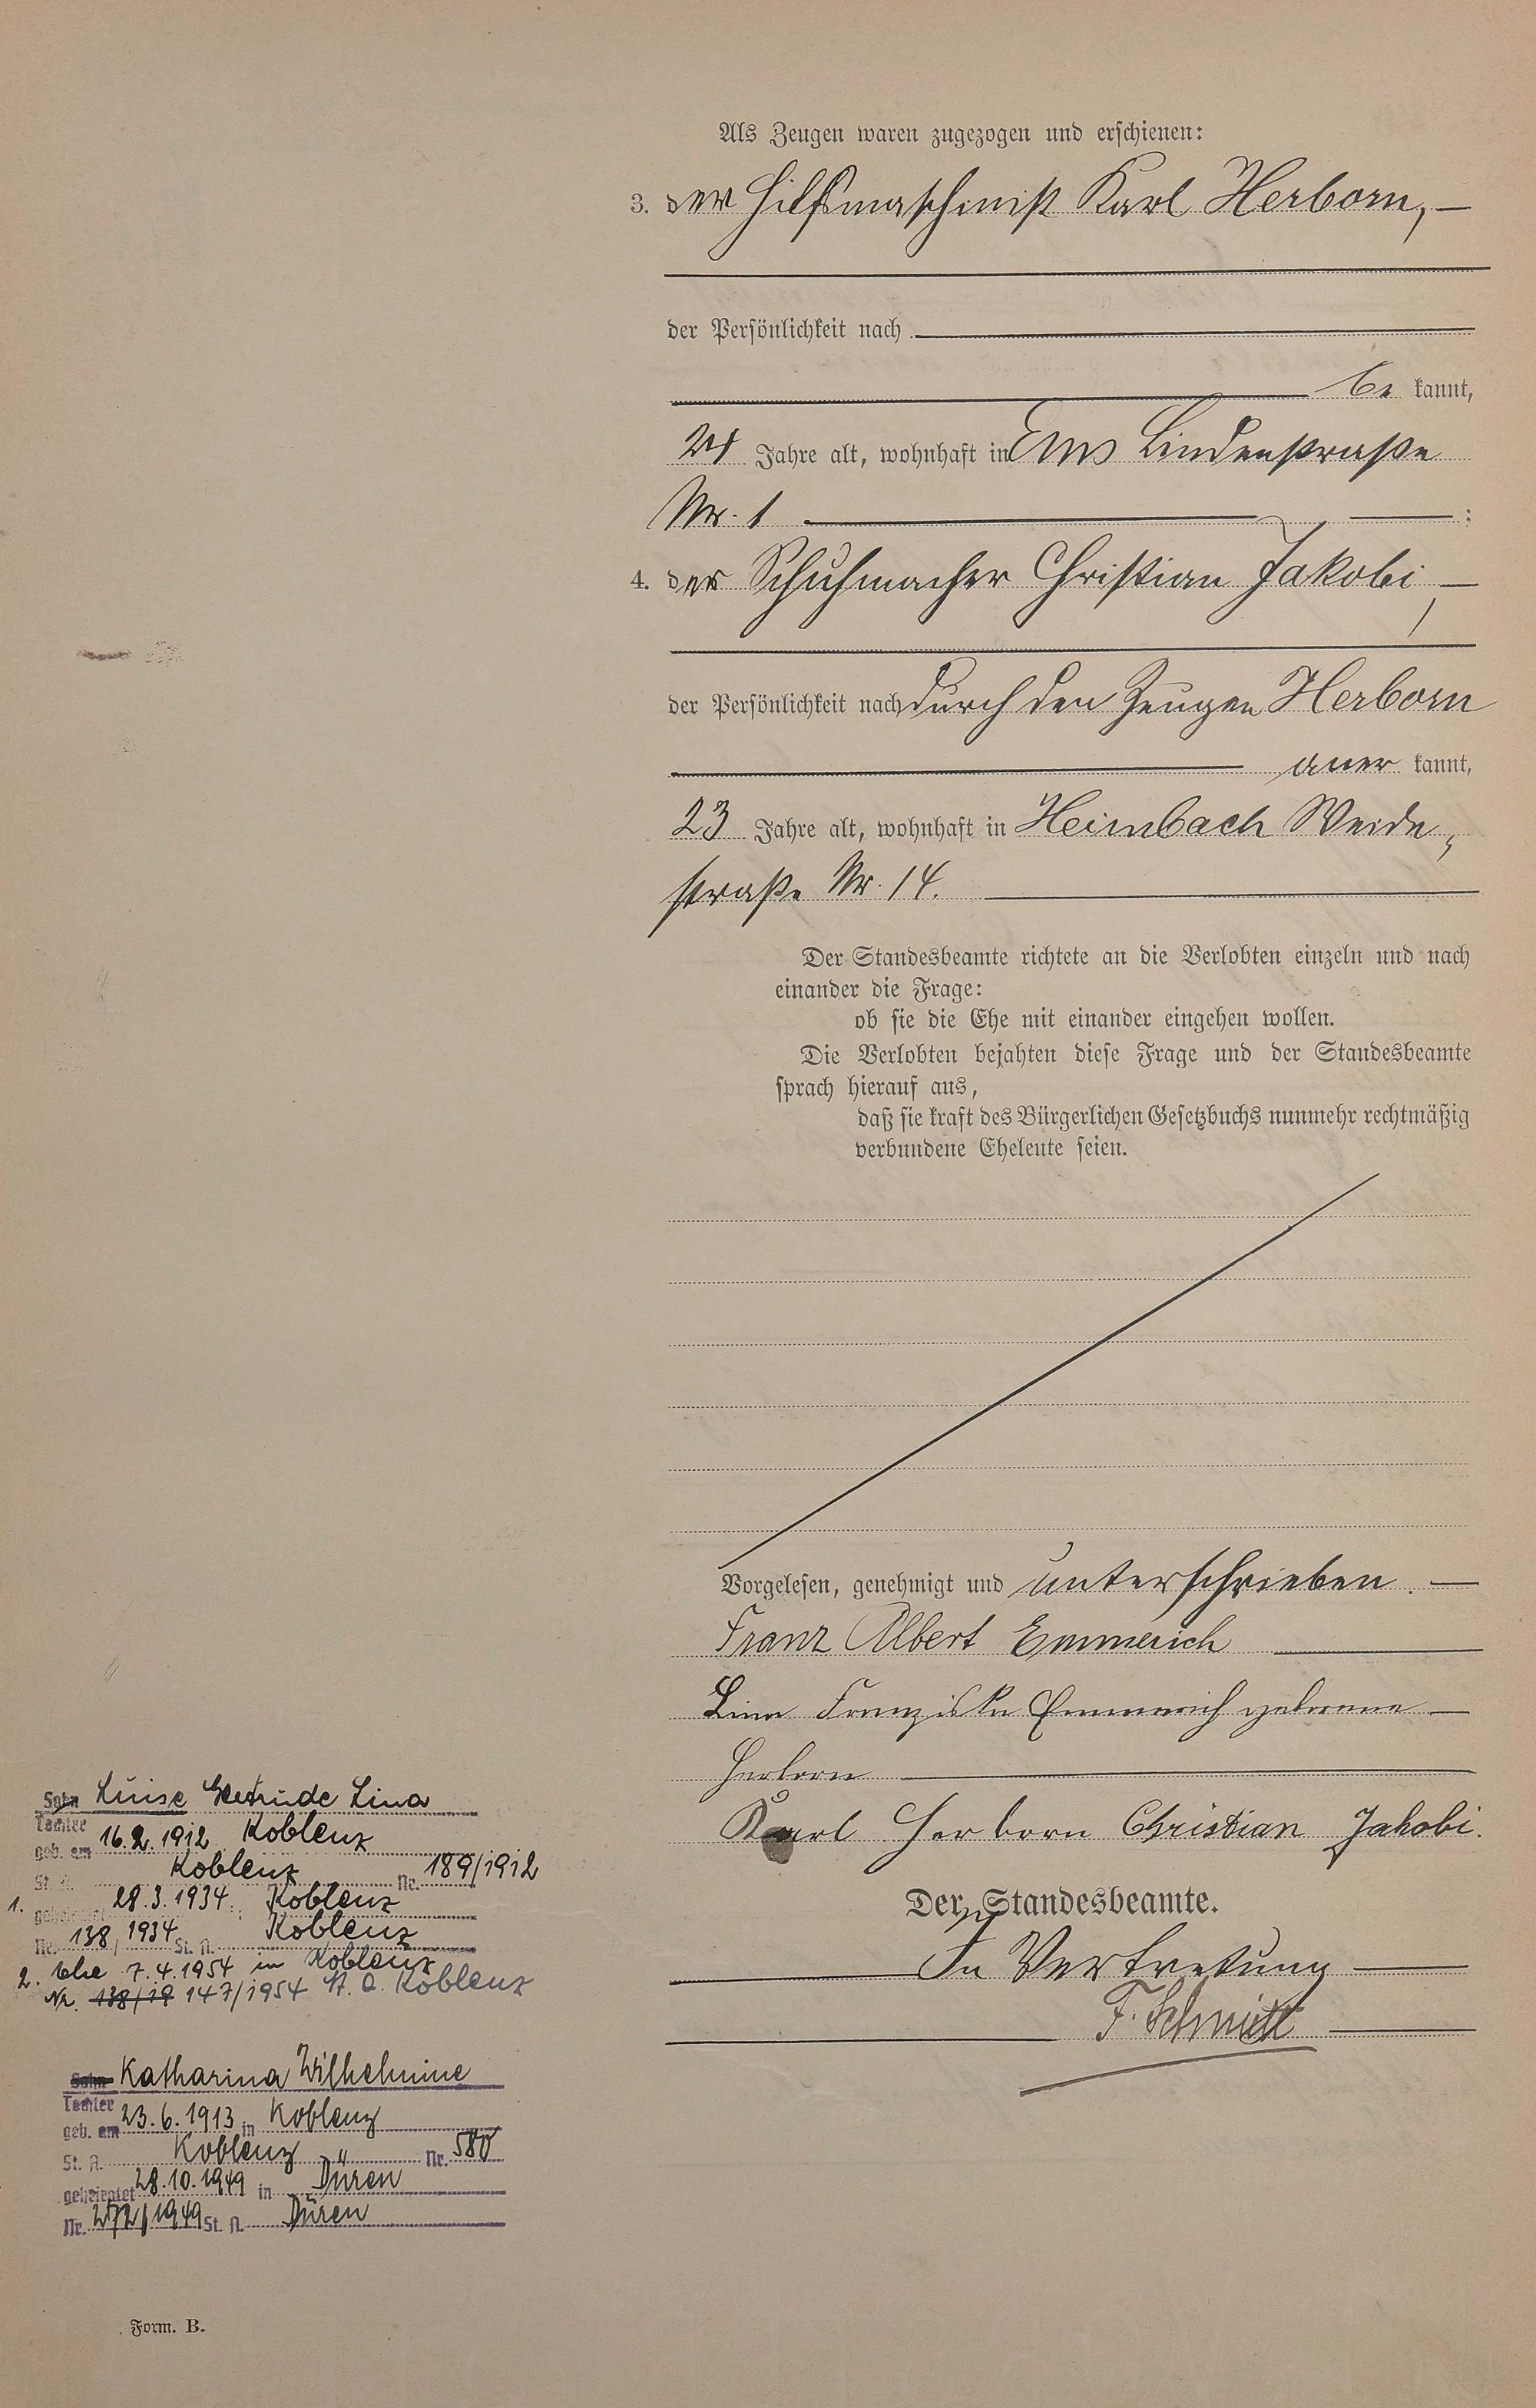 Als Zeugen waren zugezogen und erschienen:
3. der Hilfsmaschinist Karl Herborn,
der Persönlichkeit nach
be kannt,
Jahre alt, wohnhaft in Ems Lindenstraße
Nr. 1 :
4. der Schuhmacher Christian Jakobi,
der Persönlichkeit nach durch den Zeugen Herborn
aner kannt,
23 Jahre alt, wohnhaft in Heimbach Weide,
straße Nr. 14.
Der Standesbeamte richtete an die Verlobten einzeln und nach
einander die Frage:
ob sie die Ehe mit einander eingehen wollen.
Die Verlobten bejahten diese Frage und der Standesbeamte
sprach hierauf aus,
daß sie kraft des Bürgerlichen Gesetzbuchs nunmehr rechtmäßig
verbundene Eheleute seien.
Vorgelesen, genehmigt und unterschrieben.
Franz Albert Emmerich
Lina Franziska Emmerich geborene
Herborn
Karl Herborn Christian Jakobi.
Der Standesbeamte.
In Vertretung
F. Schmitt
Sohn Luise Gertrude Lina
Tochter
geb. am 16.2.1912 Koblenz
St. A. Koblenz Nr. 189/1912
1. geheiratet 28.3.1934 Koblenz
Nr. 138/1934 St. A. Koblenz
2. Ehe 7.4.1954 in Koblenz
Nr. 138/19 147/1954 St. A. Koblenz
Sohn Katharina Wilhelmine
Tochter
geb. am 23.6.1913 in Koblenz
St. A. Koblenz Nr. 580
geheiratet 28.10.1949 in Düren
Nr. 272/1949 St. A. Düren
Form. B.